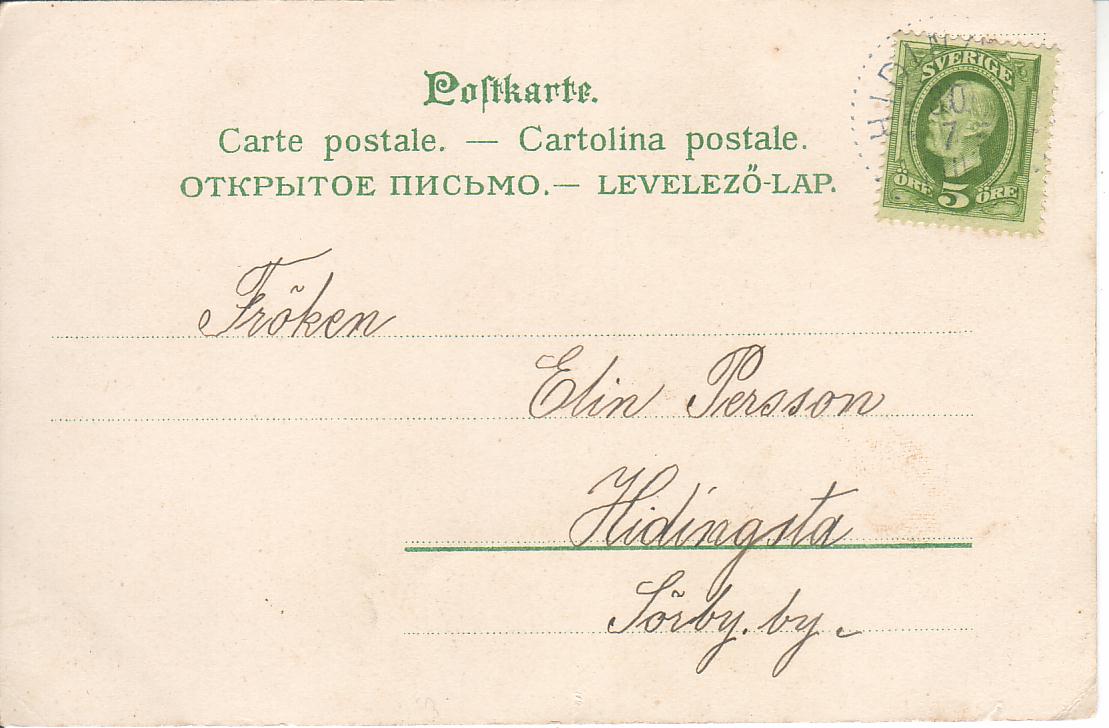 Postkarte.
Carte postale. — Cartolina postale.
ОТКРЫТОЕ ПИСЬМО. — LEVELEZŐ-LAP.
SVERIGE
ÖRE 5 ÖRE
Fröken
Elin Persson
Hidingsta
Sörby. by.